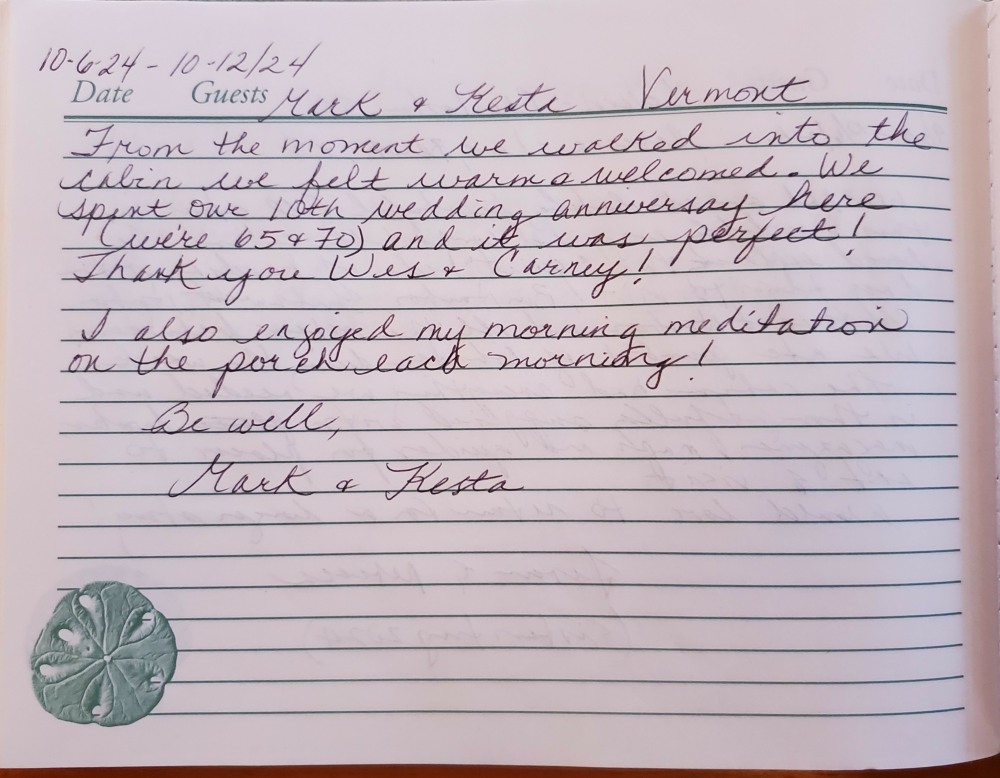 10-6-24 - 10-12/24
Date Guests Mark & Kesta Vermont
From the moment we walked into the
cabin we felt warm & welcomed. We
spent our 10th wedding anniversay here
(we're 65 & 70) and it was perfect!
Thank you Wes & Carney!
I also enjoyed my morning meditation
on the porch each morning!
Be well,
Mark & Kesta